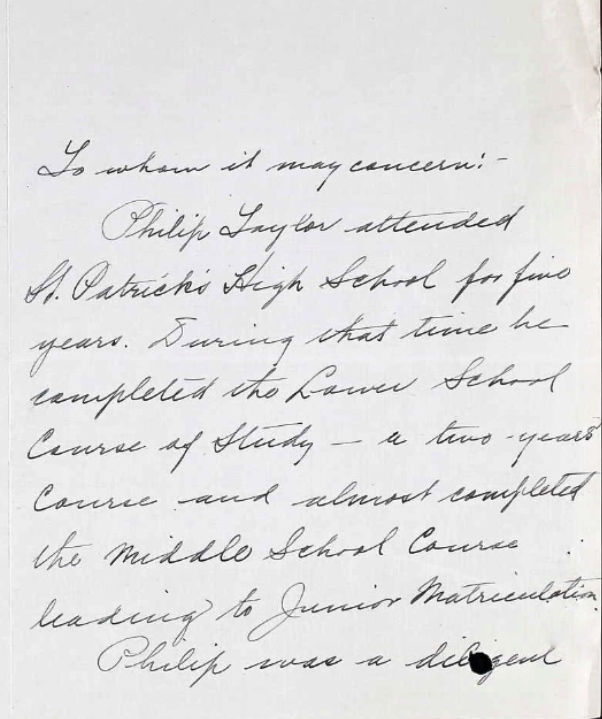 To whom it may concern:-
Philip Taylor attended
St. Patrick's High School for five
years. During that time he
completed the Lower School
Course of Study - a two-years
Course and almost completed
the Middle School Course
leading to Junior Matriculation.
Philip was a diligent